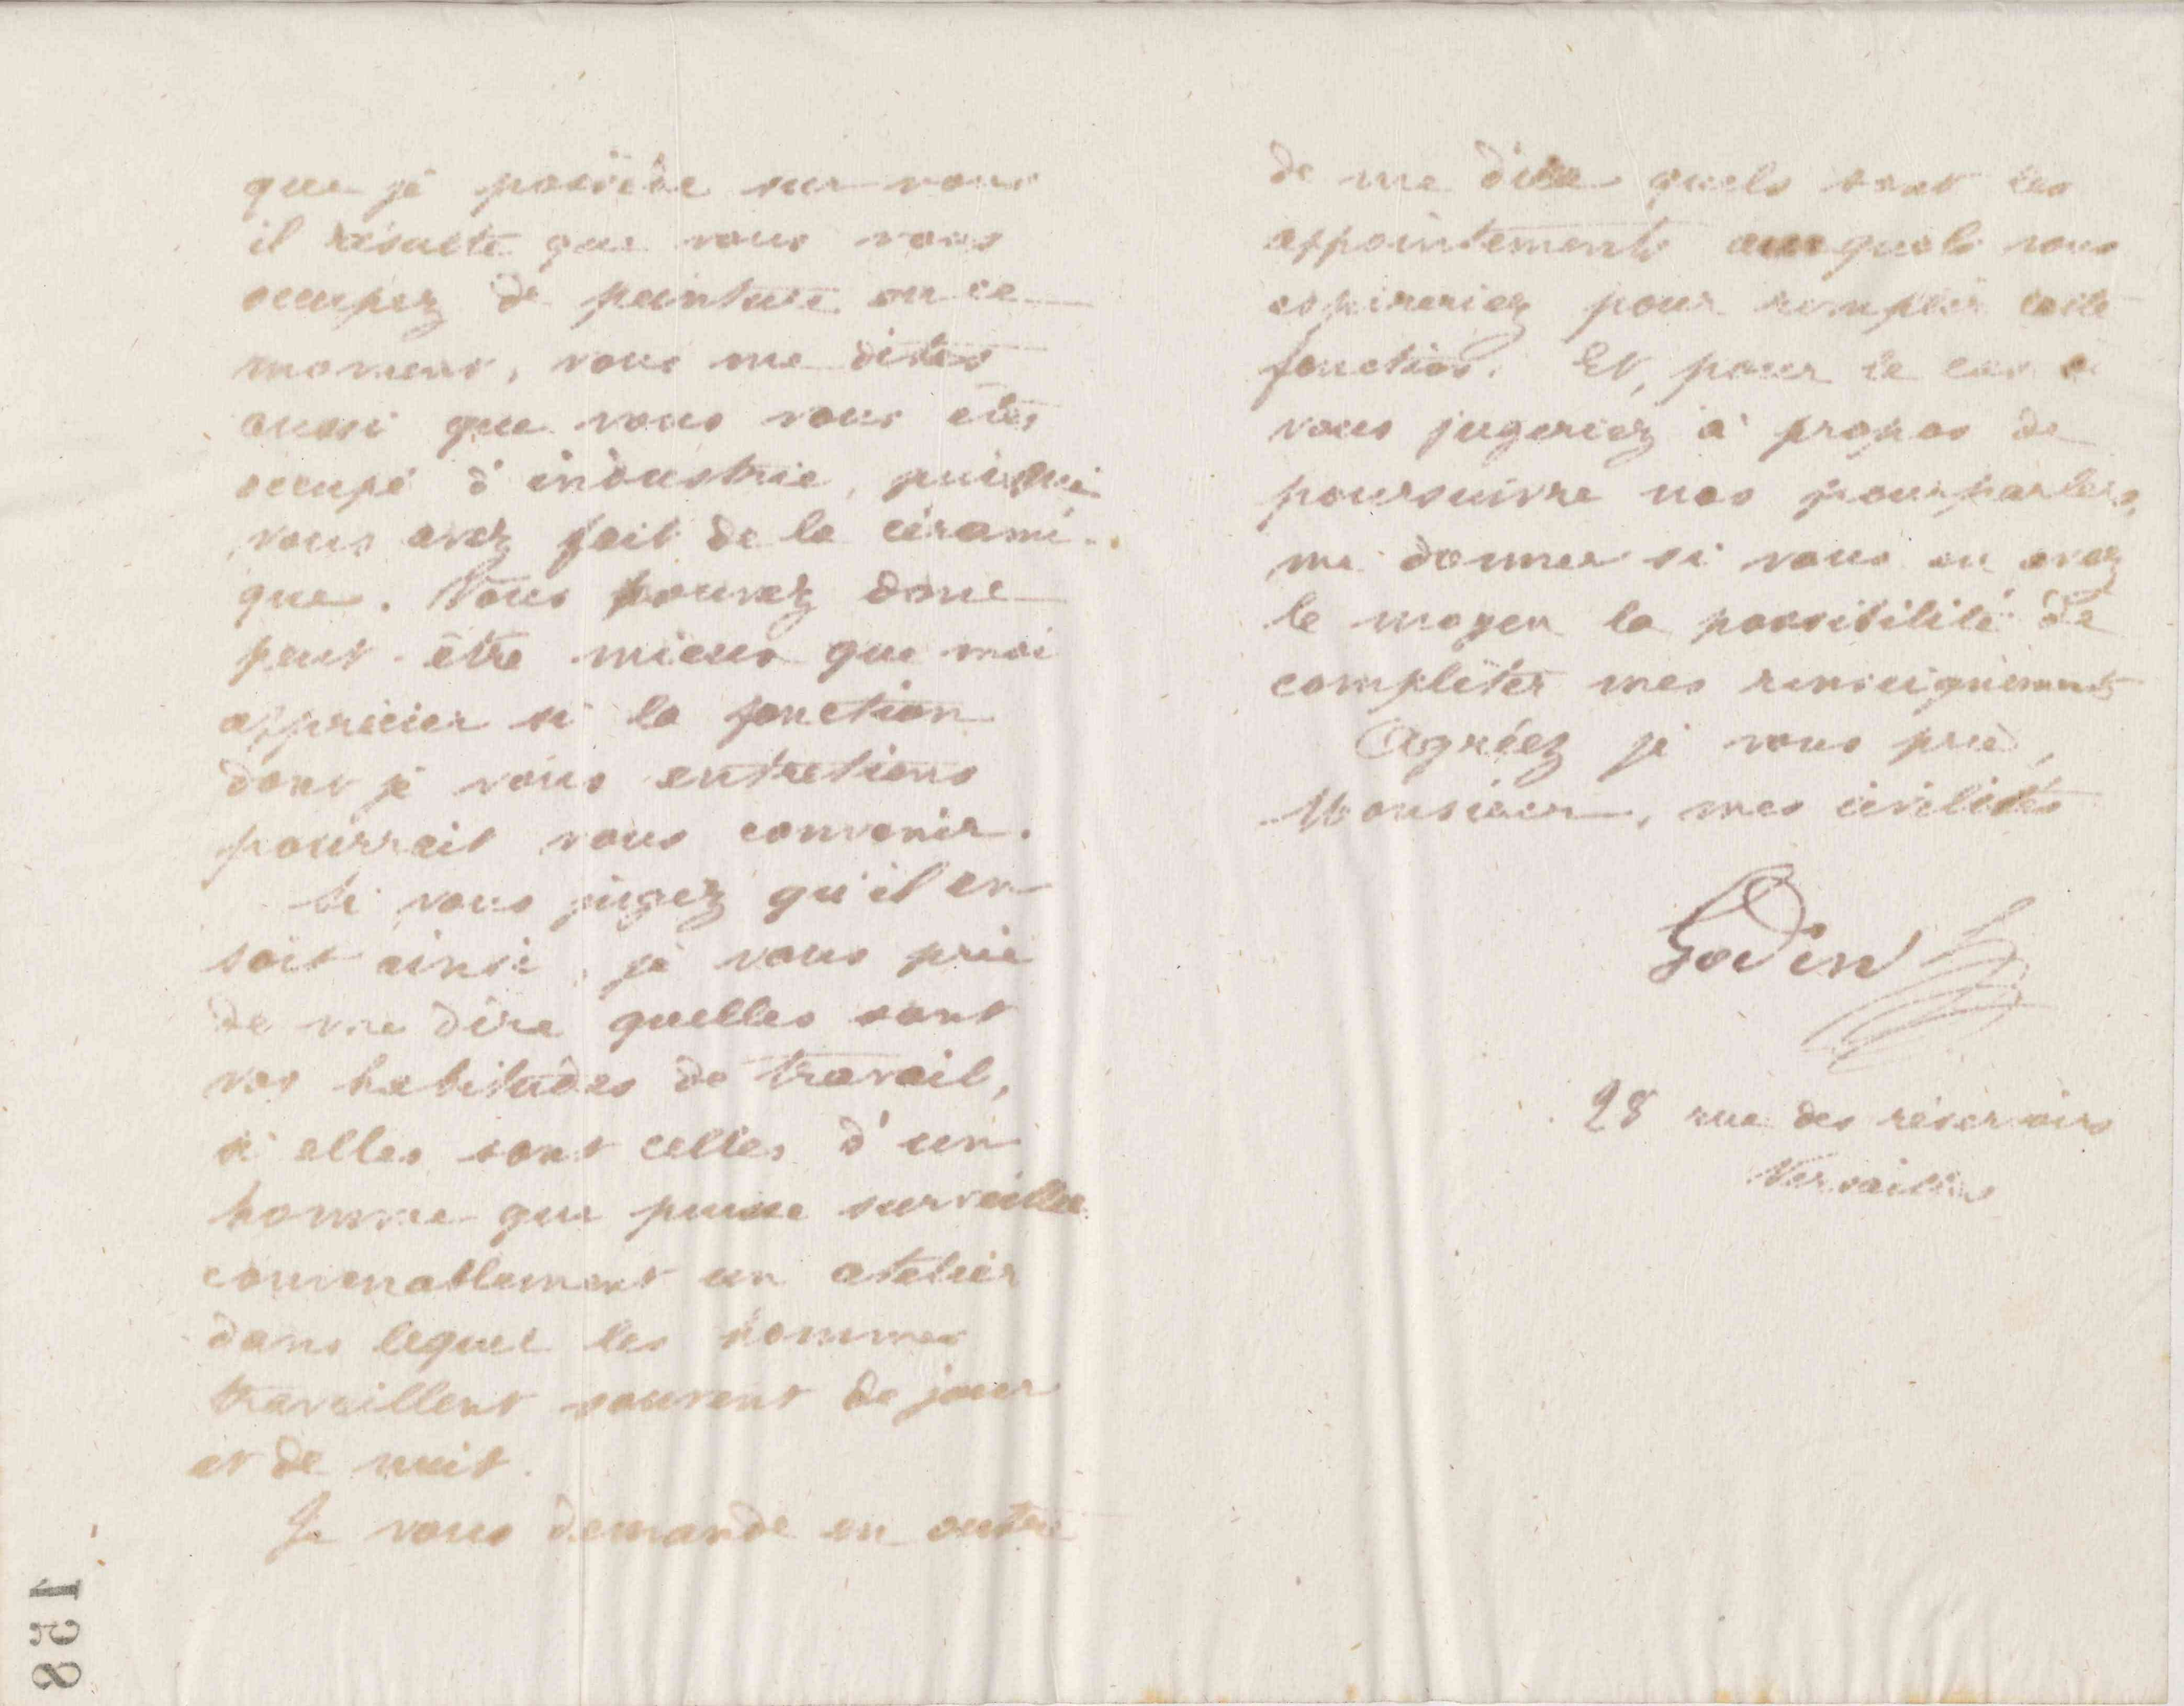 que je possède sur vous
il résulte que vous vous
occupez de peinture en ce
moment, vous me dites
aussi que vous vous êtes
occupé d'industrie, puisque
vous avez fait de la cérami-
que. Vous pouvez donc
peut-être mieux que moi
apprécier si la fonction
dont je vous entretiens
pourrait vous convenir.
Si vous jugez qu'il en
soit ainsi, je vous prie
de me dire quelles sont
vos habitudes de travail,
si elles sont celles d'un
homme qui puisse surveiller
convenablement un atelier
dans lequel les hommes
travaillent souvent de jour
et de nuit.
Je vous demande en outre
158
de me dire quels sont les
appointements auxquels vous
aspireriez pour remplir cette
fonction. Et, pour le cas où
vous jugeriez à propos de
poursuivre nos pourparlers,
me donner si vous en avez
le moyen la possibilité de
compléter mes renseignements
Agréez je vous prie,
Monsieur, mes civilités
Godin
28 rue des réservoirs
Versailles